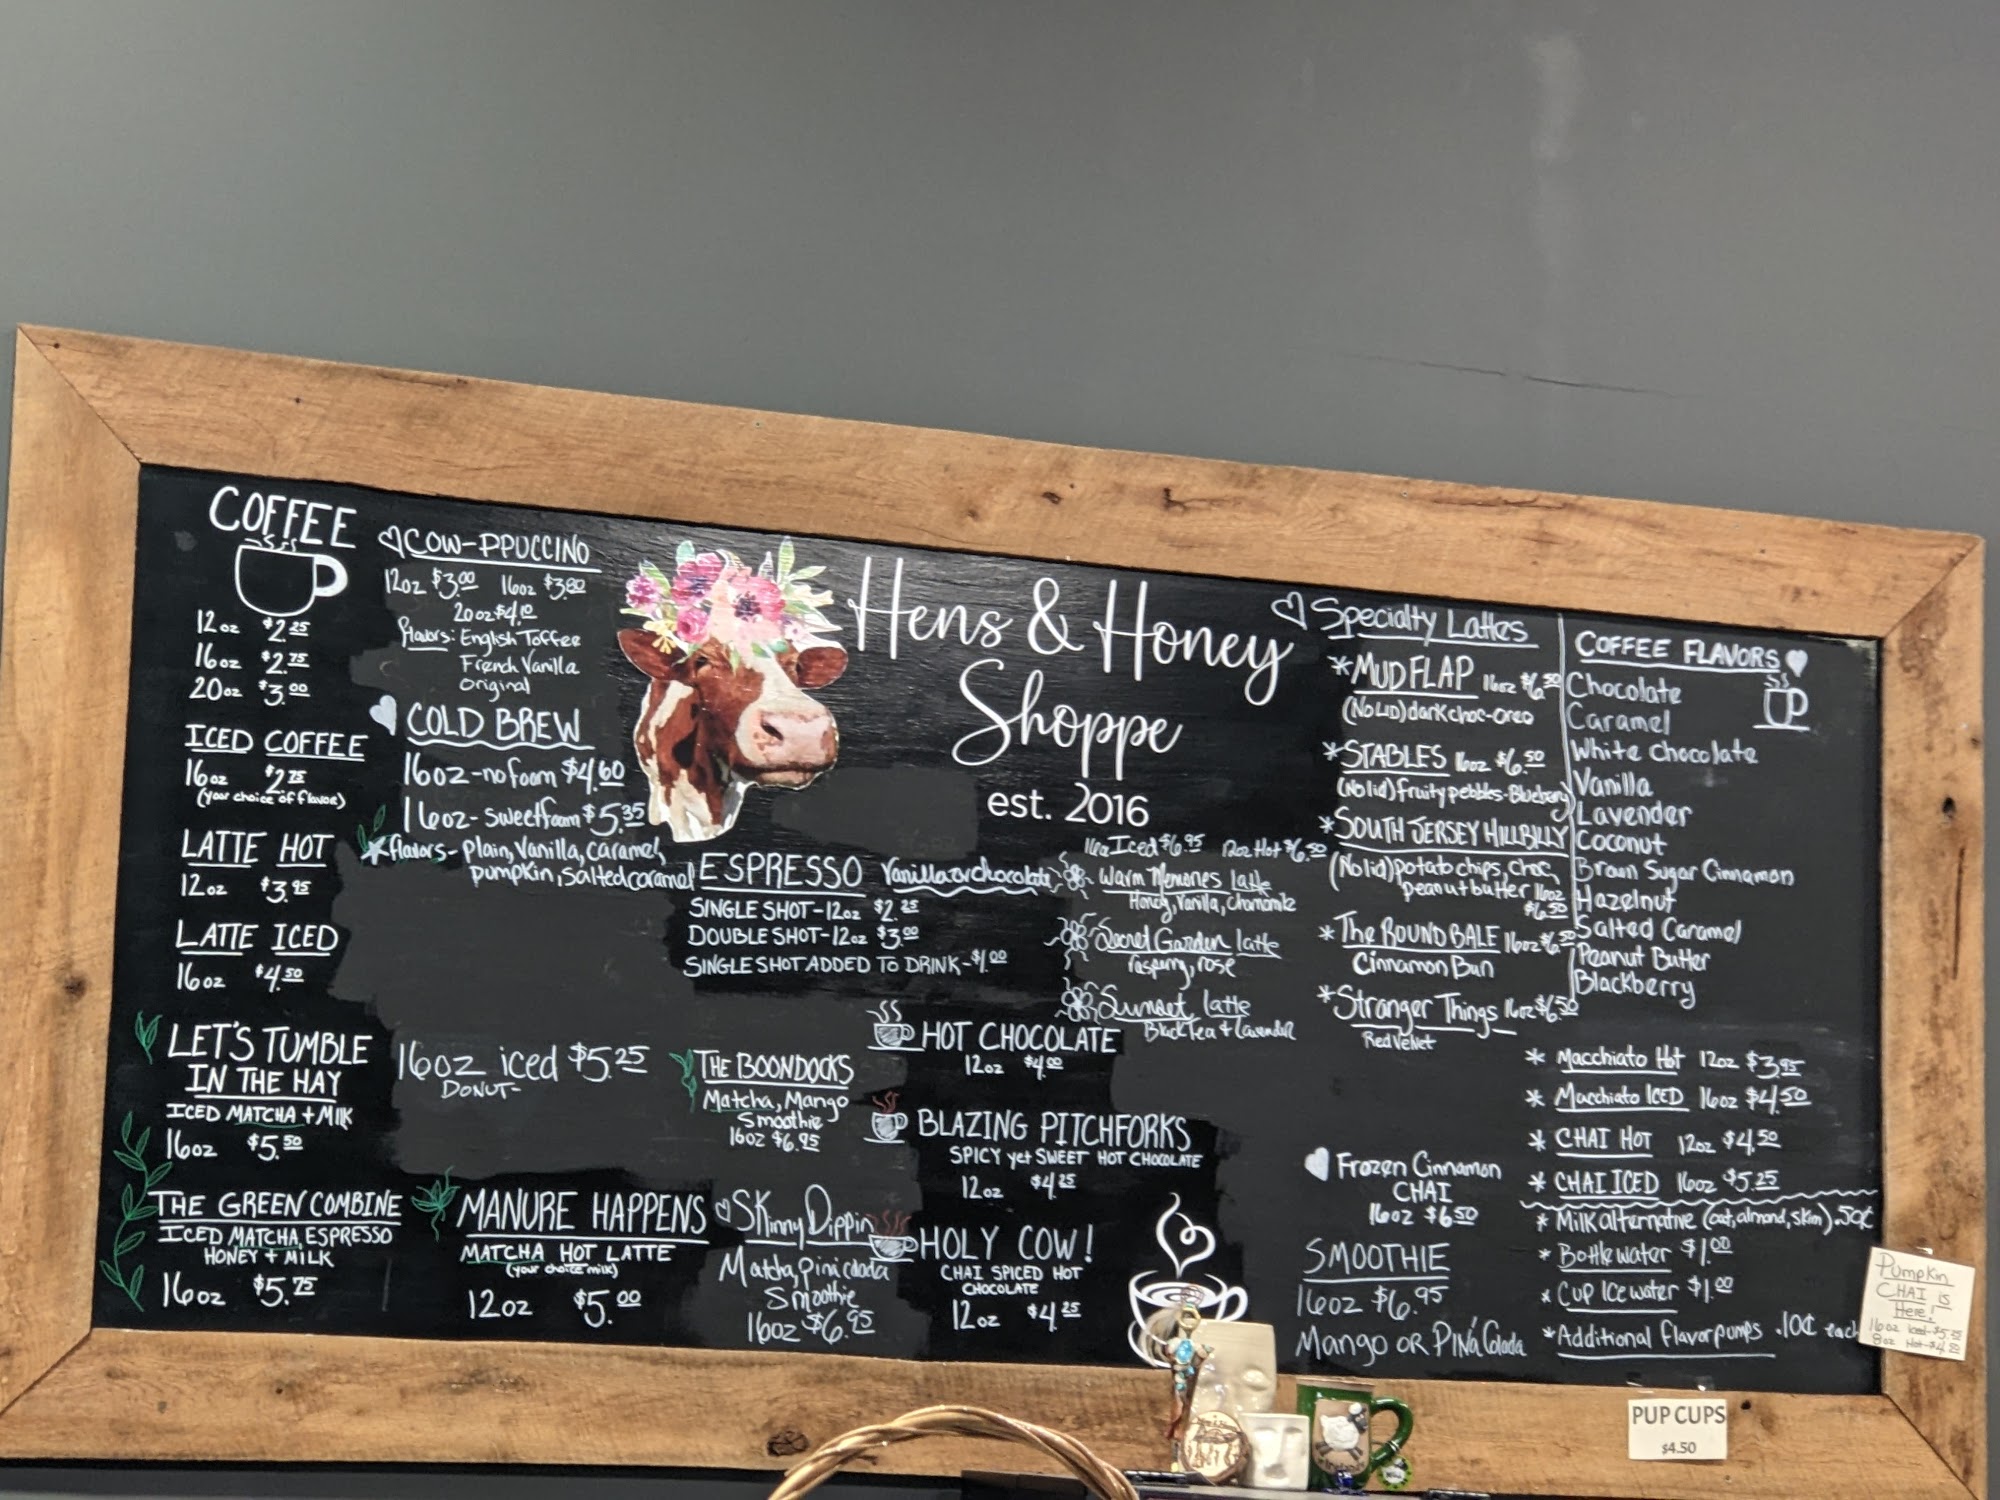 COFFEE
12oz $2.25
16oz $2.75
20oz $3.00
ICED COFFEE
16oz $2.75
(your choice of flavor)
LATTE HOT
12oz $3.95
LATTE ICED
16oz $4.50
LET'S TUMBLE
IN THE HAY
ICED MATCHA + MILK
16oz $5.50
THE GREEN COMBINE
ICED MATCHA, ESPRESSO
HONEY + MILK
16oz $5.75
COW-PPUCCINO
12oz $3.00 16oz $3.80
20oz $4.10
flavors: English Toffee
French Vanilla
Original
COLD BREW
16oz-no foam $4.60
16oz-sweetfoam $5.35
flavors- plain, Vanilla, caramel,
pumpkin, salted caramel
16oz iced $5.25
DONUT-
MANURE HAPPENS
MATCHA HOT LATTE
(your choice milk)
12oz $5.00
Hens & Honey
Shoppe
est. 2016
ESPRESSO Vanilla or chocolate
SINGLE SHOT-12oz $2.25
DOUBLE SHOT-12oz $3.00
SINGLE SHOT ADDED TO DRINK-$1.00
THE BOONDOCKS
Matcha, Mango
Smoothie
16oz $6.95
SKinny Dippin
Matcha, pina colada
Smoothie
16oz $6.95
HOT CHOCOLATE
12oz $4.00
BLAZING PITCHFORKS
SPICY yet SWEET HOT CHOCOLATE
12oz $4.25
HOLY COW!
CHAI SPICED HOT
CHOCOLATE
12oz $4.25
16oz Iced $6.95 12oz Hot $6.50
Warm Memories Latte
Honey, Vanilla, Chamomile
Secret Garden latte
raspberry, rose
Sunset latte
Black Tea + Lavender
Specialty Lattes
*MUD FLAP 16oz $6.50
(No LID) dark choc-oreo
*STABLES 16oz $6.50
(No lid) fruity pebbles-Blueberry
*SOUTH JERSEY HILLBILLY
(No lid) potato chips, choc,
peanut butter 16oz
$6.50
*The ROUND BALE 16oz $6.50
Cinnamon Bun
*Stranger Things 16oz $6.50
Red Velvet
Frozen Cinnamon
CHAI
16oz $6.50
SMOOTHIE
16oz $6.95
Mango OR PINA Colada
COFFEE FLAVORS
Chocolate
Caramel
White chocolate
Vanilla
Lavender
Coconut
Brown Sugar Cinnamon
Hazelnut
Salted Caramel
Peanut Butter
Blackberry
* Macchiato Hot 12oz $3.95
* Macchiato ICED 16oz $4.50
* CHAI HOT 12oz $4.50
* CHAI ICED 16oz $5.25
* Milk alternative (oat, almond, skim) .50¢
* Bottle water $1.00
* Cup Ice water $1.00
*Additional flavor pumps .10¢ each
Pumpkin
CHAI is
Here!
PUP CUPS
$4.50